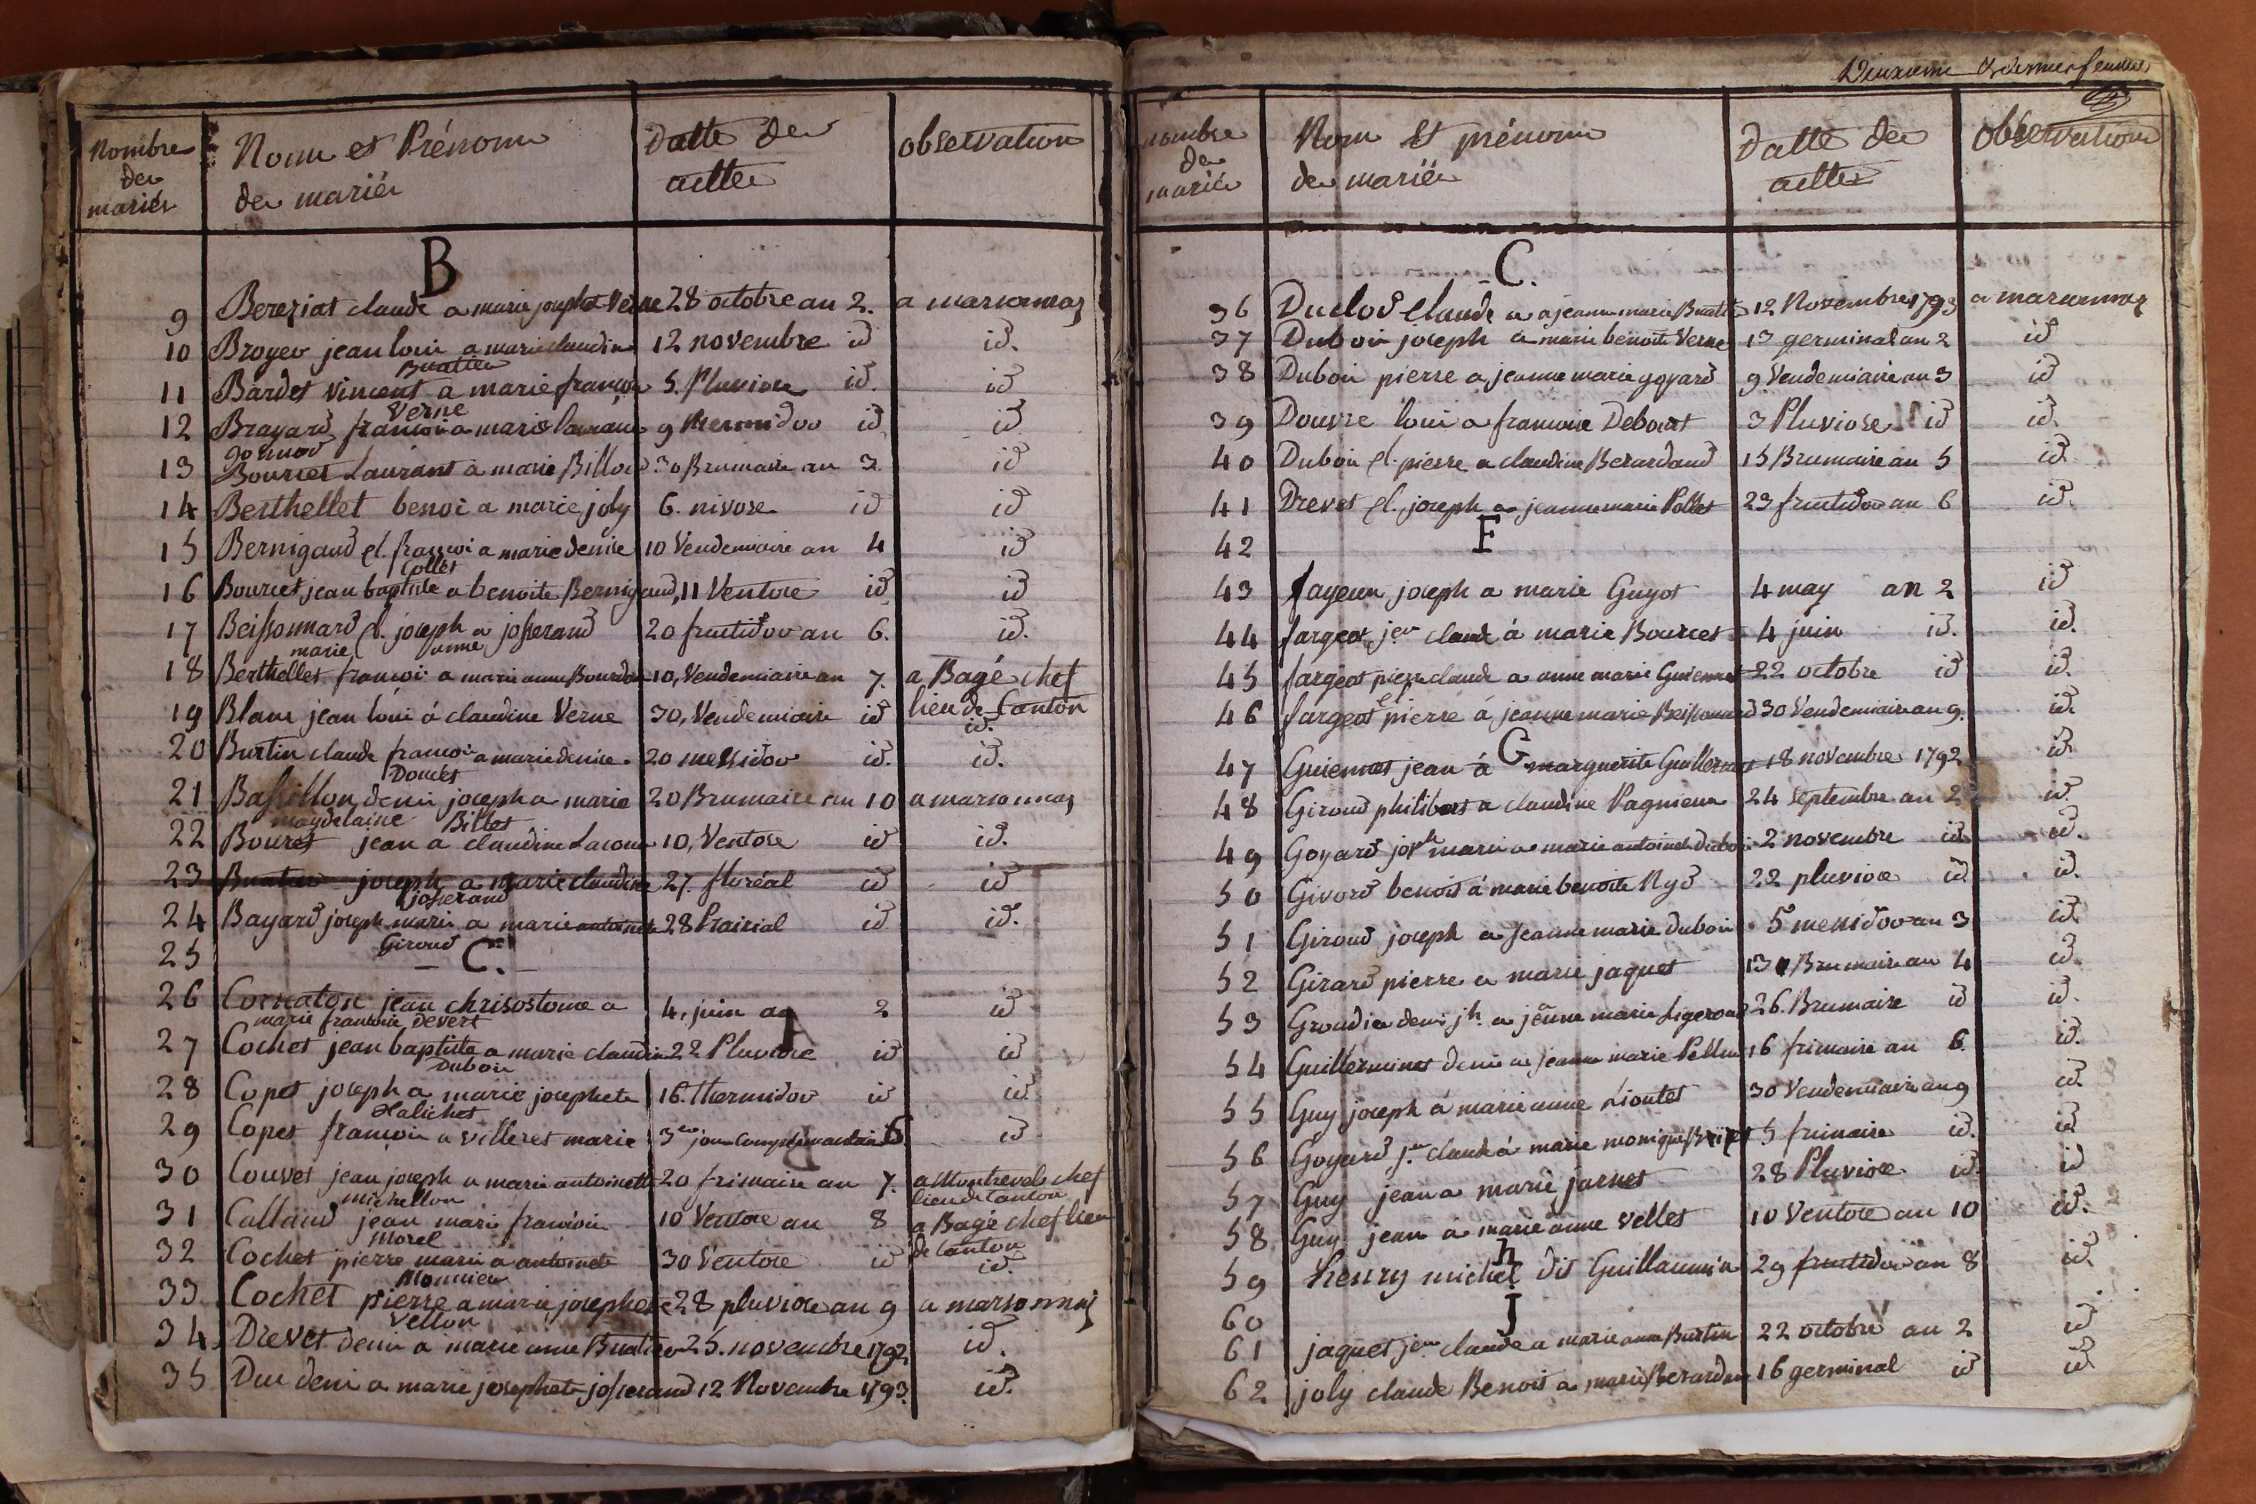 Nombre des mariés
Nom et Prénom des mariés
Datte des actes
observation
B
9 Bereziat claude a marie josephte Verne 28 octobre an 2. a marsonnas
10 Broyer jean loui a marie claudine 12 novembre id id.
Buattier
11 Bardet vincent a marie françoise 5. Pluviose id. id
Verne
12 Brayard françoi a marie 9 thermidor id id
gonnod
13 Bourcet Laurant a marie Billoud 30 Brumaire an 3 id
14 Berthellet benoi a marie joly 6. nivose id id
15 Bernigaud cl. françoi a marie denise 10 Vendemiaire an 4 id
Collet
16 Bourcet jean baptiste a benoite Bernigaud, 11 Ventose id id
17 Beissonnard cl. joseph a josserand 20 fructidor an 6. id.
marie anne
18 Berthellet françoi a marie anne Bourdon 10, Vendemiaire an 7. a Bagé chef
lieu de Canton
19 Blanc jean loui á claudine Verne 30, Vendemiaire id id.
20 Burtin claude françoi a marie denise 20 messidor id. id.
Doucet
21 Bassillon, deni joseph a marie 20 Brumaire an 10 a marsonnas
magdelaine Billet
22 Bouret jean a claudine Lacour 10, Ventose id id.
23 Buatier joseph a marie claudine 27. floréal id id
josserand
24 Bayard joseph marie a marie antoinete 28 Prairial id id.
Giroud
25 C.
26 Cornaton jean chrisostome a 4, juin an 2 id
marie françoise devert
27 Cochet jean baptiste a marie claudine 22 Pluviose id id
Duboi
28 Copet joseph a marie josephete 16. thermidor id id.
Xalichet
29 Copet françoi a villeret marie 3eme jour complementaire 6 id
30 Couvet jean joseph a marie antoinette 20 frimaire an 7. a Montrevel chef
michellon lieu de Canton
31 Calland jean marie françoise 10 Ventose an 8 a Bagé chef lieu
Morel de Canton
32 Cochet pierre marie a antoinete 30 Ventose id id.
Monnier
33 Cochet pierre a marie josephete 28 pluviose an 9 a marsonnas
Vellon
34 Drevet deni a marie anne Buatier 25. novembre 1792 id.
35 Duc deni a marie josephete josserand 12 Novembre 1793. id.
Deuxieme & dernier feuillet
nombre des mariés
Nom Et prénom des mariés
Datte des actes
Observation
C.
36 Duclod Claude a jeanne marie Buatier 12 Novembre 1793 a marsonnas
37 Duboi joseph a marie benoite Verne 13 germinal an 2 id
38 Duboi pierre a jeanne marie goyard 9 Vendemiaire an 3 id
39 Douvre loui a françoise Debourt 3 Pluviose id id.
40 Duboi cl. pierre a claudine Berardand 15 Brumaire an 5 id.
41 Drevet cl. joseph a jeanne marie Pollet 23 fructidor an 6 id.
42 F
43 fayeun joseph a marie Guyot 4 may an 2 id
44 fargeot jean claude á marie Bourcet 4 juin id. id.
45 fargeot pierre claude a anne marie Guiennet 22 octobre id id.
46 fargeot cl. pierre á jeanne marie Beissonnard 30 Vendemiaire an 9. id.
G
47 Guiemet jean á marguerite Guillermet 18 novembre 1792 id.
48 Giroud philibert a claudine Pagnieux 24 septembre an 2 id.
49 Goyard joseph marie a marie antoinete duboi 2 novembre id. id.
50 Givord benoit á marie benoite Nyd 22 pluviose id. id.
51 Giroud joseph a Jeanne marie duboi 5 messidor an 3 id.
52 Girard pierre a marie jaquet 13 Brumaire an 4 id.
53 Groudier deni jh. a jeanne marie Ligeron 26. Brumaire id id.
54 Guillerminet deni a jeanne marie Pellin 16 frimaire an 6. id.
55 Guy joseph á marie anne Lioutet 30 Vendemiaire an 9 id.
56 Goyard jean claude á marie monique 5 frimaire id. id
57 Guy jean a marie jarnet 28 Pluviose id. id
58 Guy jean a marie anne Vellet 10 Ventose an 10 id.
h
59 henry michel dit Guillaumin 29 fructidor an 8 id.
60 J
61 jaquet jean claude a marie anne Burtin 22 octobre an 2 id
62 joly claude Benoit a marie Berardan 16 germinal id id.